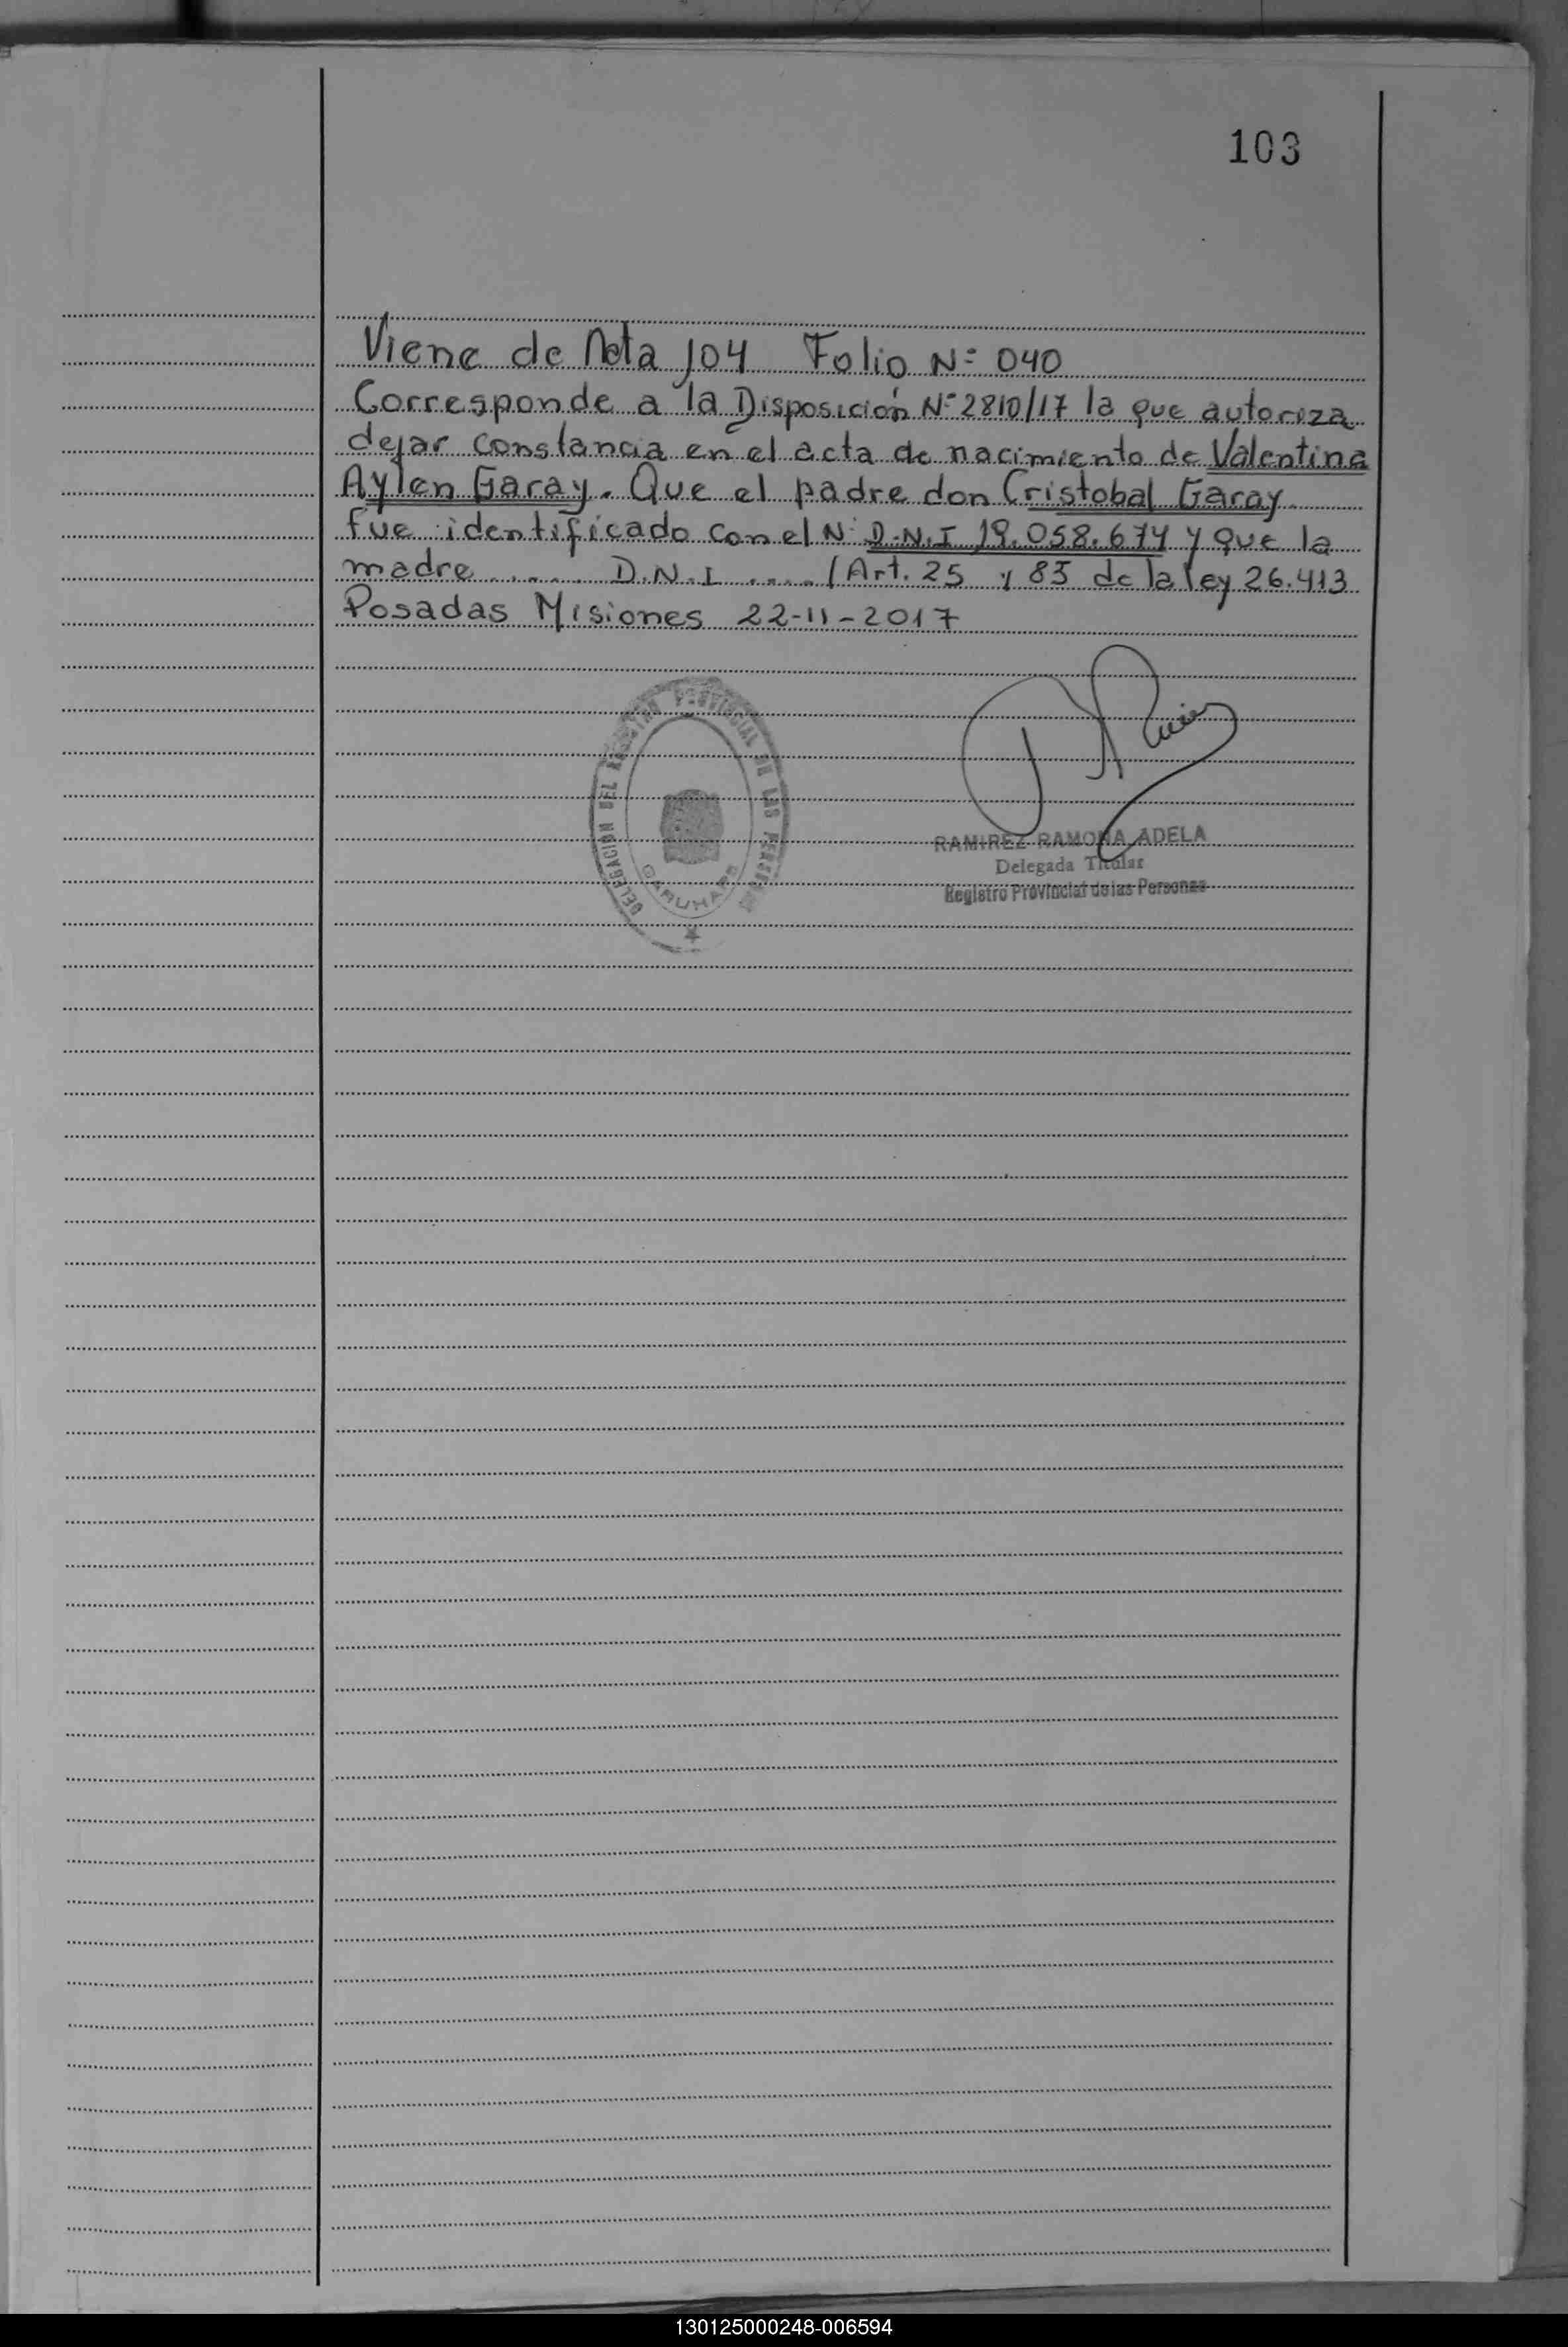 103
Viene de Acta 104 Folio Nº 040
Corresponde a la Disposición Nº 2810/17 la que autoriza
dejar constancia en el acta de nacimiento de Valentina
Aylen Garay. Que el padre don Cristobal Garay
fue identificado con el Nº D.N.I 19.058.674 y que la
madre ...... D.N.I ..... (Art. 25 y 85 de la ley 26.413
Posadas Misiones 22-11-2017
DELEGACION DEL REGISTRO PROVINCIAL DE LAS PERSONAS
GARUHAPE
RAMIREZ RAMONA ADELA
Delegada Titular
Registro Provincial de las Personas
130125000248-006594